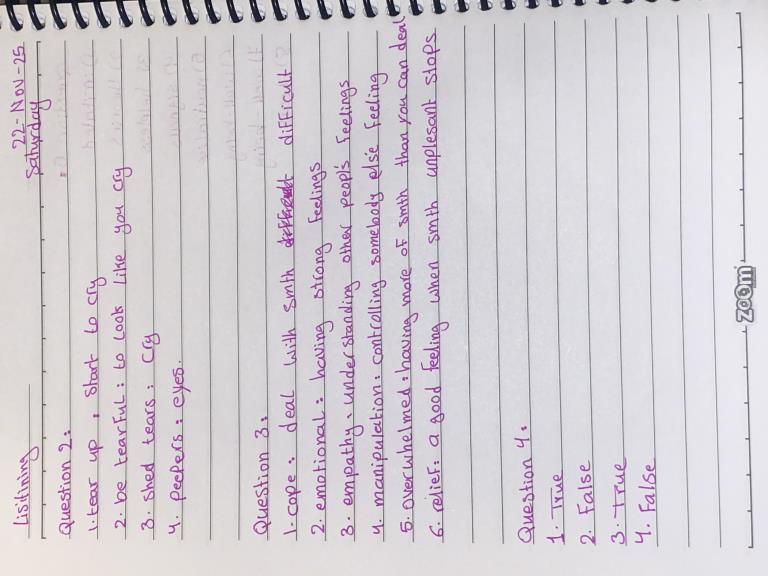 Lisitining
22-Nov-25
Saturday
Question 2:
1. tear up : start to cry
2. be tearful : to look like you cry
3. shed tears : cry
4. peepers : eyes.
Question 3:
1. cope : deal with smth difficult
2. emotional : having strong feelings
3. empathy : understanding other peopl's feelings
4. manipulation : controlling somebody else feeling
5. overwhelmed : having more of smth than you can deal
6. relief : a good feeling when smth unplesant stops
Question 4:
1. True
2. False
3. True
4. False
zoom